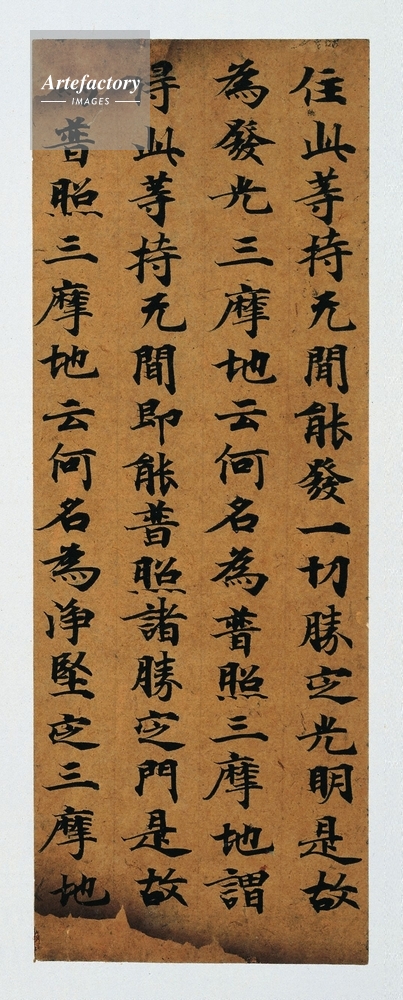 住此等持无間能發一切勝定光明是故
為發光三摩地云何名為普照三摩地謂
得此等持无間即能普照諸勝定門是故
普照三摩地云何名為淨堅定三摩地
Artefactory
IMAGES